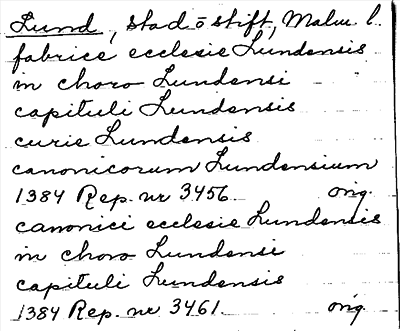 Lund, stad o stift, Malm. l.
fabrice ecclesie Lundensis
in choro Lundensi
capituli Lundensis
curie Lundensis
canonicorum Lundensium
1384 Rep. nr 3456 orig.
canonici ecclesie Lundensis
in choro Lundensi
capituli Lundensis
1384 Rep. nr 3461. orig.